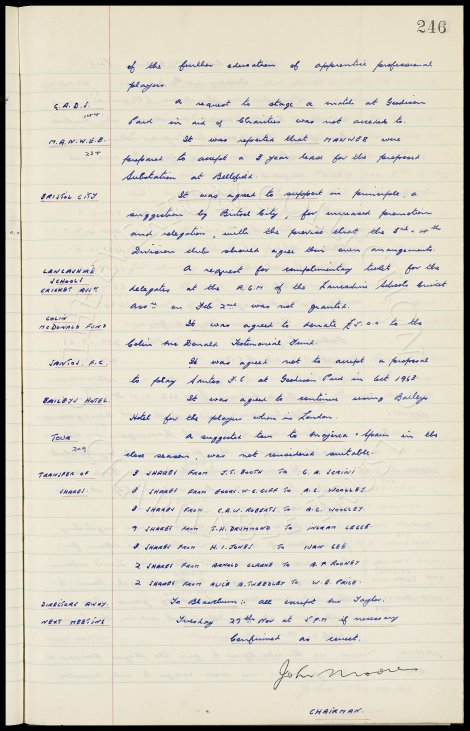 246
of the further education of apprentice professional
players.
G.A.D.S. A request to stage a match at Goodison
Park in aid of Charities was not acceded to.
M.A.N.W.E.B. It was reported that MANWEB were
234 prepared to accept a 3 year lease for the proposed
Substation at Bellefield.
BRISTOL CITY It was agreed to support in principle, a
suggestion by Bristol City, for increased promotion
and relegation, with the proviso that the 3rd & 4th
Division clubs should agree their own arrangements.
LANCASHIRE A request for complimentary tickets for the
SCHOOLS delegates at the A.G.M of the Lancashire Schools Cricket
CRICKET ASSN Assn on Feb 2nd was not granted.
COLIN It was agreed to donate £5.00 to the
McDONALD FUND Colin McDonald Testimonial Fund.
SANTOS. F.C It was agreed not to accept a proposal
to play Santos F.C at Goodison Park in Oct 1963
BAILEYS HOTEL. It was agreed to continue using Baileys
Hotel for the players when in London.
TOUR A suggested tour to Majorca & Spain in the
209 close season, was not considered suitable.
TRANSFER OF 3 SHARES FROM J.T. BOOTH TO G.A. SCRINI
SHARES. 3 SHARES FROM W.C. CUFF TO A.G. WOOLLEY
3 SHARES FROM C.A.W. ROBERTS TO A.G. WOOLLEY.
SHARES FROM T.H. DRUMMOND TO HIRAM LEGGE
3 SHARES FROM H.I. JONES TO IVAN GEE
2 SHARES FROM ARNOLD CLARKE TO A.P ROONEY
2 SHARES FROM ALICE A. TWEEDLEY TO W.E. PRICE.
DIRECTORS AWAY. To Blackburn: all except Mr Taylor.
NEXT MEETING Tuesday 27th Nov at 5 PM if necessary
Confirmed as correct.
John Moores
CHAIRMAN.